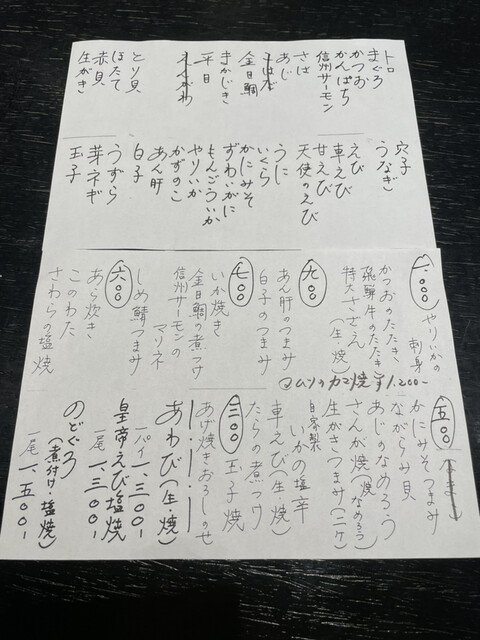 トロ
まぐろ
かつお
かんぱち
信州サーモン
さば
あじ
こはだ
金目鯛
まかじき
平目
えんがわ
とり貝
ほたて
赤貝
生がき
穴子
うなぎ
えび
車えび
甘えび
天使のえび
うに
いくら
かにみそ
ずわいがに
もんごういか
やりいか
かずのこ
あん肝
白子
うずら
芽ネギ
玉子
一、〇〇〇
やりいかの刺身
かつおのたたき、
飛騨牛のたたき
特大さざえ(生・焼)
九〇〇
あん肝のつまみ
白子のつまみ
七〇〇
いか焼き
金目鯛の煮つけ
信州サーモンのマリネ
しめ鯖つまみ
六〇〇
あら炊き
このわた
さわらの塩焼
ムツのカマ焼 ¥1,200-
五〇〇
つまみ
かにみそつまみ
ながらみ貝
あじのなめろう
さんが焼(焼なめろう)
生がきつまみ(二ケ)
自家製
いかの塩辛
車えび(生・焼)
たらの煮つけ
三〇〇
玉子焼
あげ焼きおろしのせ
あわび(生・焼)
一パイ一、三〇〇-
皇帝えび塩焼
一尾一、三〇〇-
のどぐろ
(煮付け・塩焼)
一尾一、五〇〇-